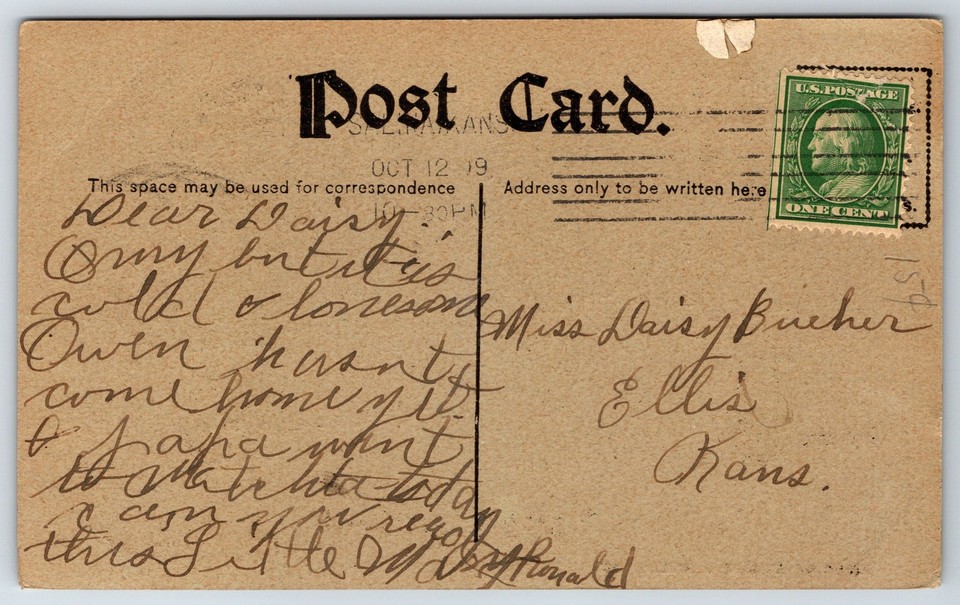 Post Card.
SALINA, KANS
OCT 12 19
10-30PM
U.S. POSTAGE
ONE CENT
This space may be used for correspondence
Address only to be written here
Dear Daisy:
O my but it is
cold & lonesome
Owen hasn't
come home yet.
& papa went
to Wichita today
can you read
this Little
Ronald
Miss Daisy Bucher
Ellis
Kans.